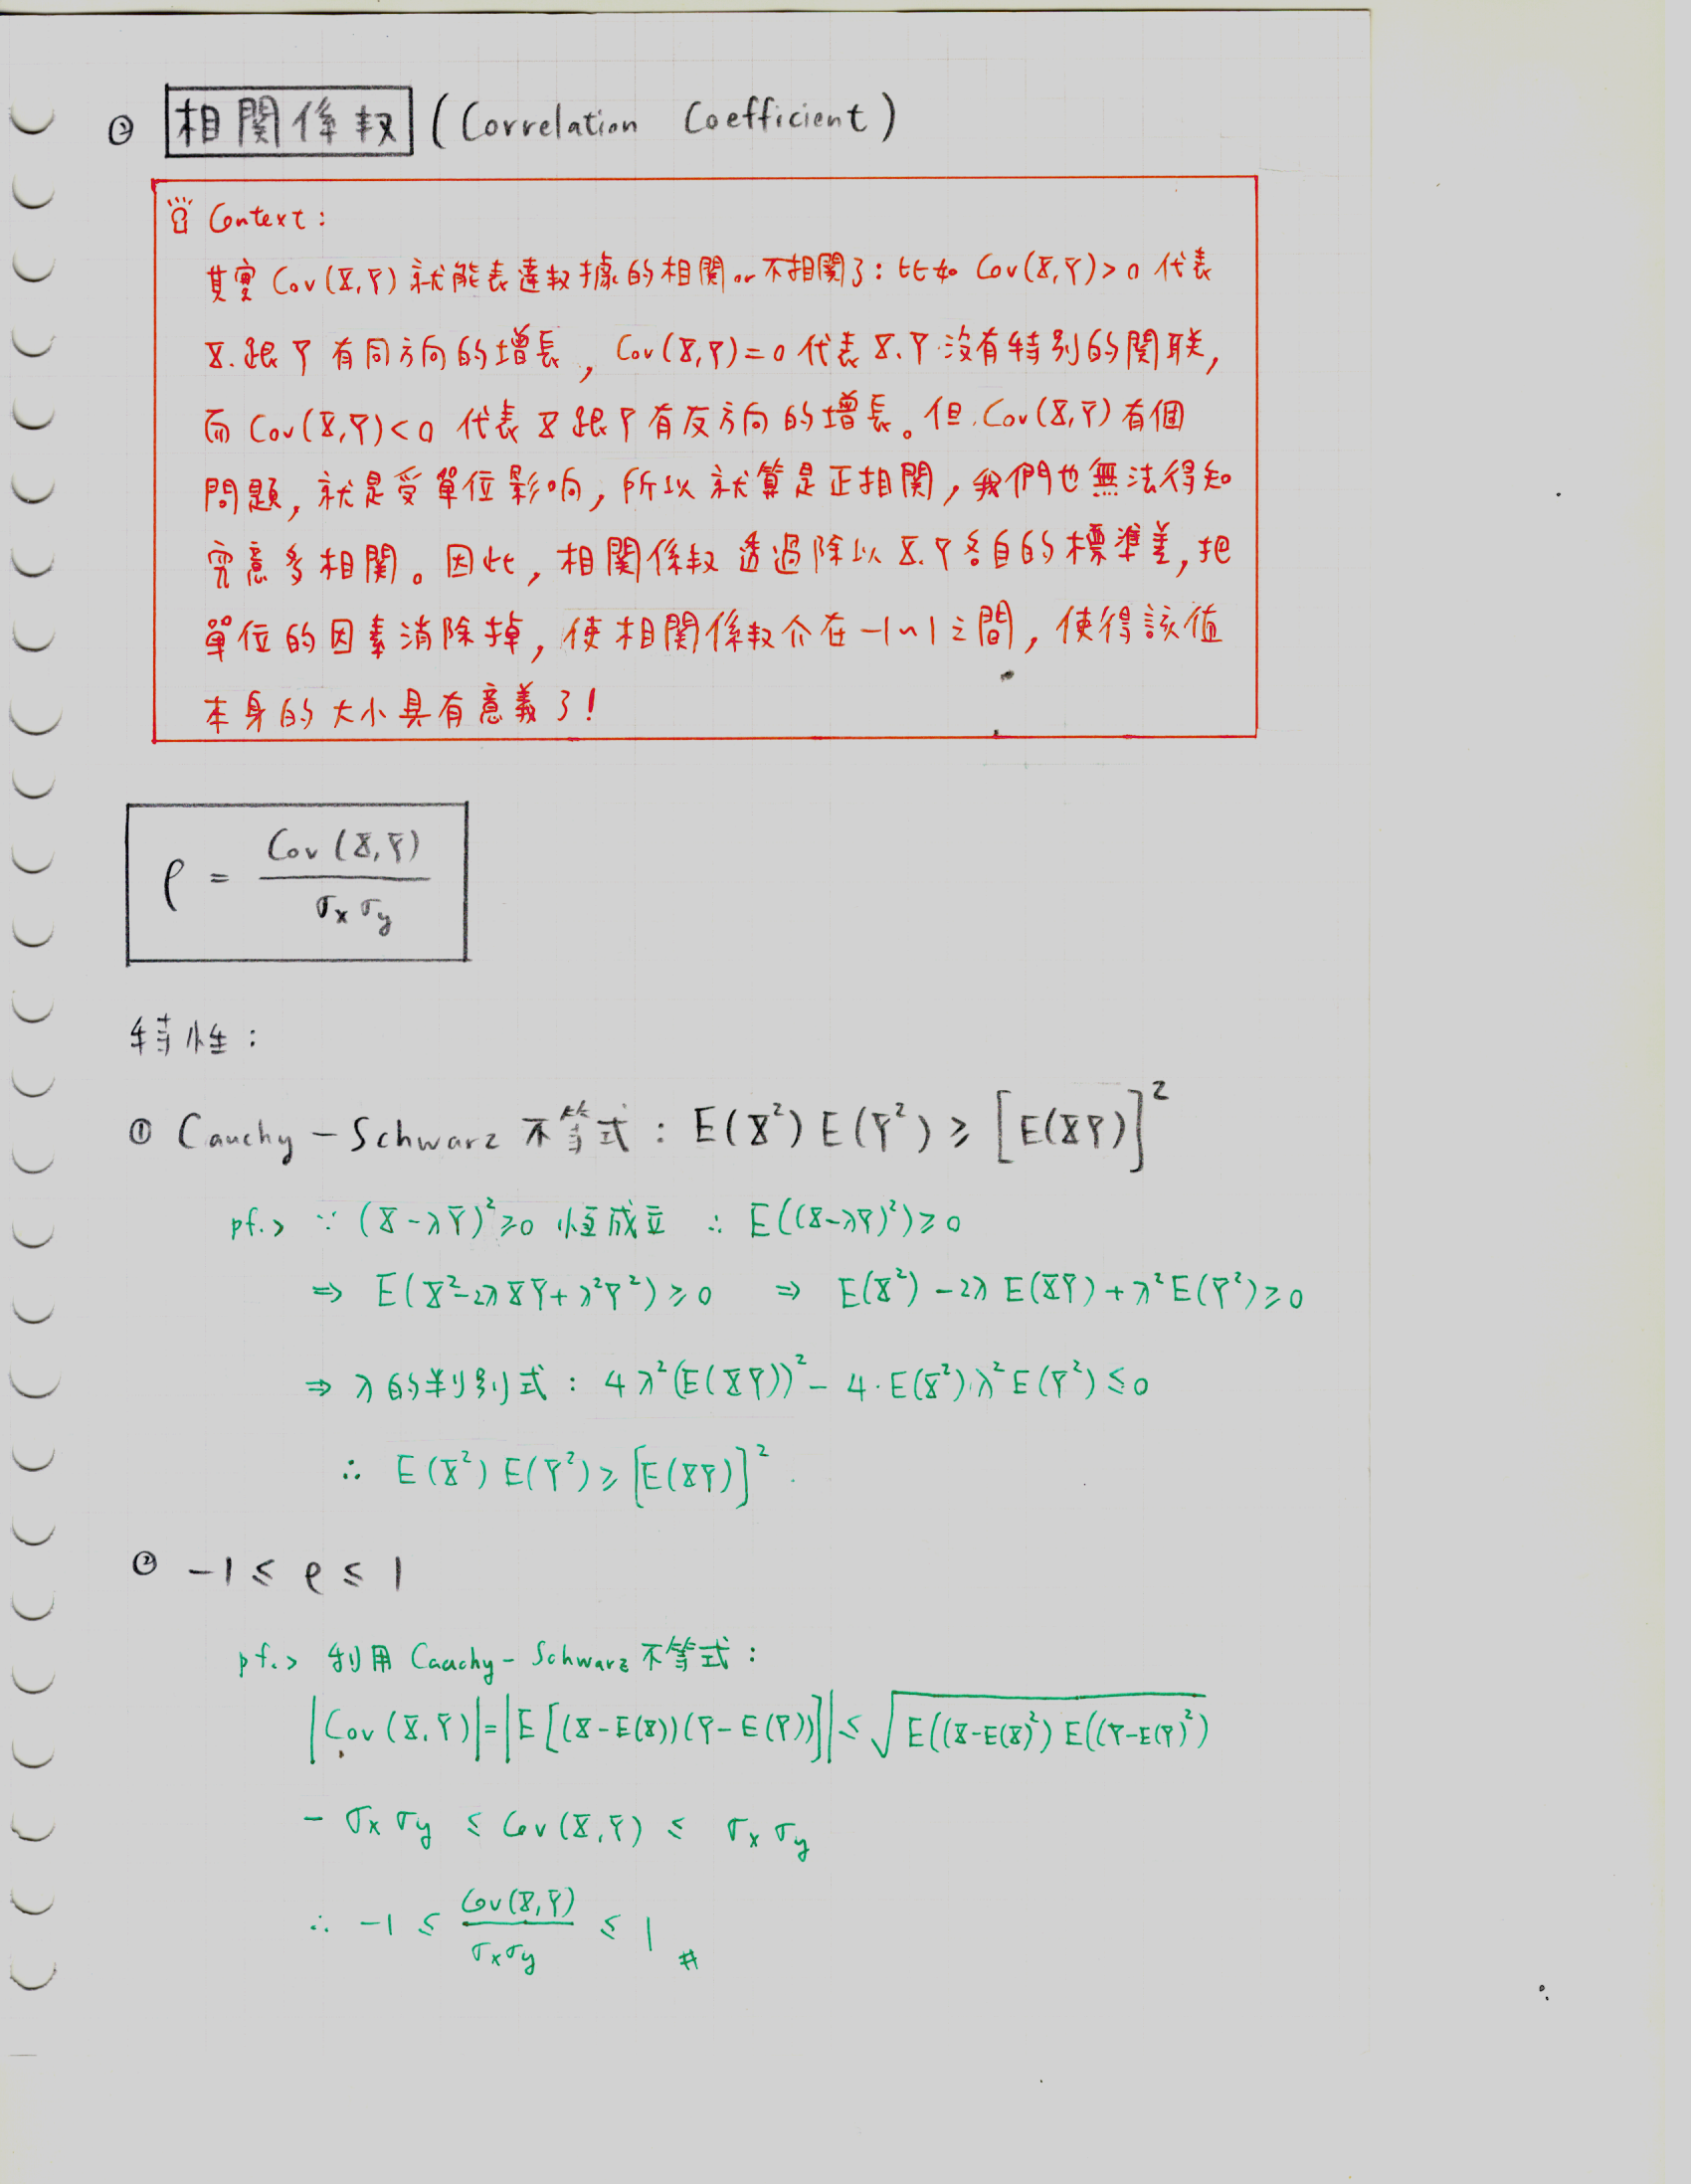 ② 相関係数 (Correlation Coefficient)
Context:
其實 Cov(X,Y) 就能表達数據的相関 or 不相関了: 比如 Cov(X,Y) > 0 代表
X.跟 Y 有同方向的增長, Cov(X,Y) = 0 代表 X.Y 没有特別的関联,
而 Cov(X,Y) < 0 代表 X 跟 Y 有反方向的增長。但 Cov(X,Y) 有個
問題, 就是受單位影响, 所以就算是正相関, 我們也無法得知
究意多相関。因此, 相関係数透過除以 X.Y 各自的標準差, 把
單位的因素消除掉, 使相関係数介在 -1~1 之間, 使得該值
本身的大小具有意義了!
ρ = Cov(X,Y) / σx σy
特性:
① Cauchy - Schwarz 不等式: E(X²) E(Y²) ≥ [E(XY)]²
pf.> ∵ (X-λY)² ≥ 0 恒成立 ∴ E((X-λY)²) ≥ 0
⇒ E(X²-2λXY+λ²Y²) ≥ 0 ⇒ E(X²) - 2λ E(XY) + λ² E(Y²) ≥ 0
⇒ λ的判別式: 4λ²(E(XY))² - 4·E(X²)·λ² E(Y²) ≤ 0
∴ E(X²) E(Y²) ≥ [E(XY)]²
② -1 ≤ ρ ≤ 1
pf.> 利用 Cauchy - Schwarz 不等式:
|Cov(X,Y)| = |E[(X-E(X))(Y-E(Y))]| ≤ √E((X-E(X)²) E((Y-E(Y)²)
- σx σy ≤ Cov(X,Y) ≤ σx σy
∴ -1 ≤ Cov(X,Y) / σx σy ≤ 1 #